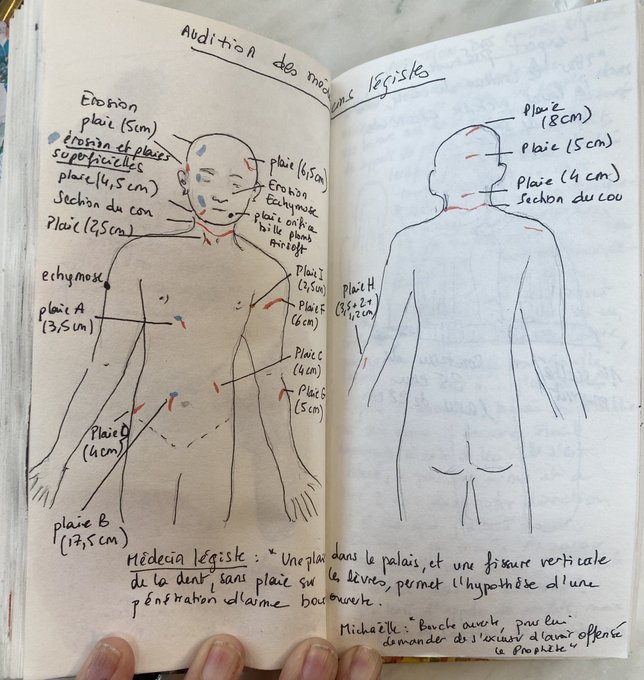 Audition des médecins légistes
Erosion
plaie (5cm)
érosion et plaies
superficielles
plaie (4,5cm)
Section du cou
Plaie (2,5cm)
echymose
plaie A
(3,5cm)
Plaie D
(4cm)
plaie B
(17,5cm)
plaie (6,5cm)
Erosion
Echymose
plaie orifice
bille plomb
Airsoft
Plaie I
(2,5cm)
Plaie F
(6cm)
Plaie C
(4cm)
Plaie G
(5cm)
Plaie
(8cm)
Plaie (5cm)
Plaie (4cm)
Section du cou
Plaie H
(3,5+2+
1,2cm)
Médecin légiste : "Une plaie dans le palais, et une fissure verticale
de la dent, sans plaie sur les lèvres, permet l'hypothèse d'une
pénétration d'arme bouche ouverte.
Michaëlle : "Bouche ouverte, pour lui
demander de s'excuser d'avoir offensé
le Prophète"